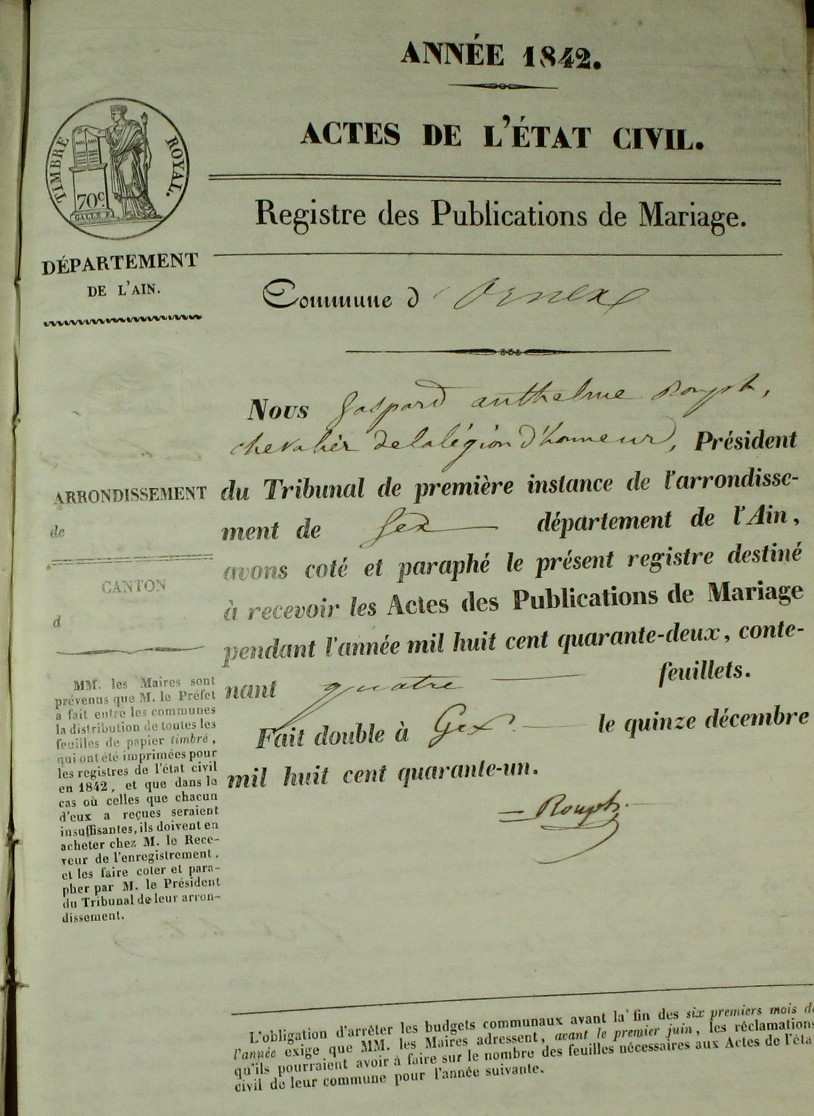 ANNÉE 1842.
ACTES DE L'ÉTAT CIVIL.
TIMBRE ROYAL.
70c
DÉPARTEMENT
DE L'AIN.
Registre des Publications de Mariage.
Commune d'Ornex
ARRONDISSEMENT
de
CANTON
d
MM. les Maires sont
prévenus que M. le Préfet
a fait entre les communes
la distribution de toutes les
feuilles de papier timbré,
qui ont été imprimées pour
les registres de l'état civil
en 1842, et que dans le
cas où celles que chacun
d'eux a reçues seraient
insuffisantes, ils doivent en
acheter chez M. le Rece-
veur de l'enregistrement,
et les faire coter et para-
pher par M. le Président
du Tribunal de leur arron-
dissement.
Nous Gaspard anthelme Rouph,
chevalier de la légion d'honneur, Président
du Tribunal de première instance de l'arrondisse-
ment de Gex département de l'Ain,
avons coté et paraphé le présent registre destiné
à recevoir les Actes des Publications de Mariage
pendant l'année mil huit cent quarante-deux, conte-
nant quatre feuillets.
Fait double à Gex le quinze décembre
mil huit cent quarante-un.
Rouph
L'obligation d'arrêter les budgets communaux avant la fin des six premiers mois de
l'année exige que MM. les Maires adressent, avant le premier juin, les réclamations
qu'ils pourraient avoir à faire sur le nombre des feuilles nécessaires aux Actes de l'éta
civil de leur commune pour l'année suivante.